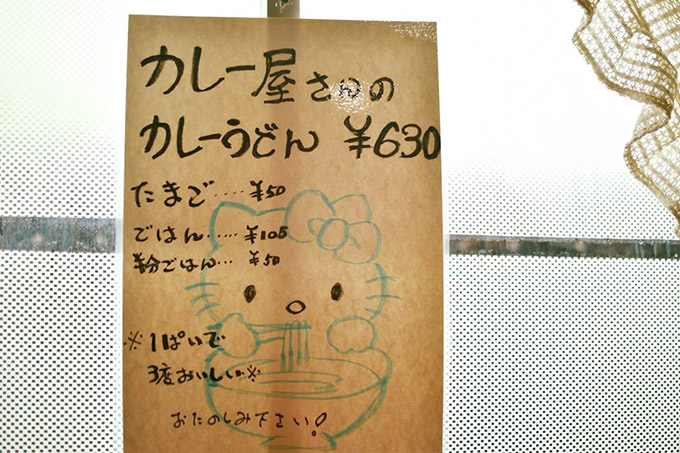 カレー屋さんの
カレーうどん ¥630
たまご‥‥ ¥50
ごはん‥‥ ¥105
半分ごはん… ¥50
※1ぱいで
3度おいしい※
おたのしみ下さい!